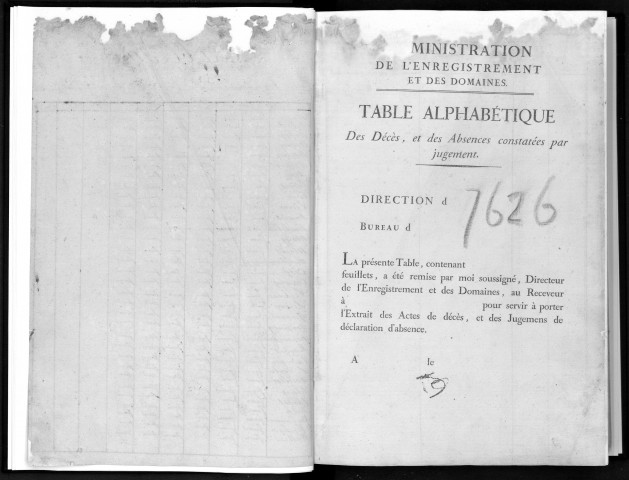 MINISTRATION
DE L'ENREGISTREMENT
ET DES DOMAINES.
TABLE ALPHABÉTIQUE
Des Décès, et des Absences constatées par
jugement.
DIRECTION d
7626
BUREAU d
LA présente Table, contenant
feuillets, a été remise par moi soussigné, Directeur
de l'Enregistrement et des Domaines, au Receveur
à pour servir à porter
l'Extrait des Actes de décès, et des Jugemens de
déclaration d'absence.
A le